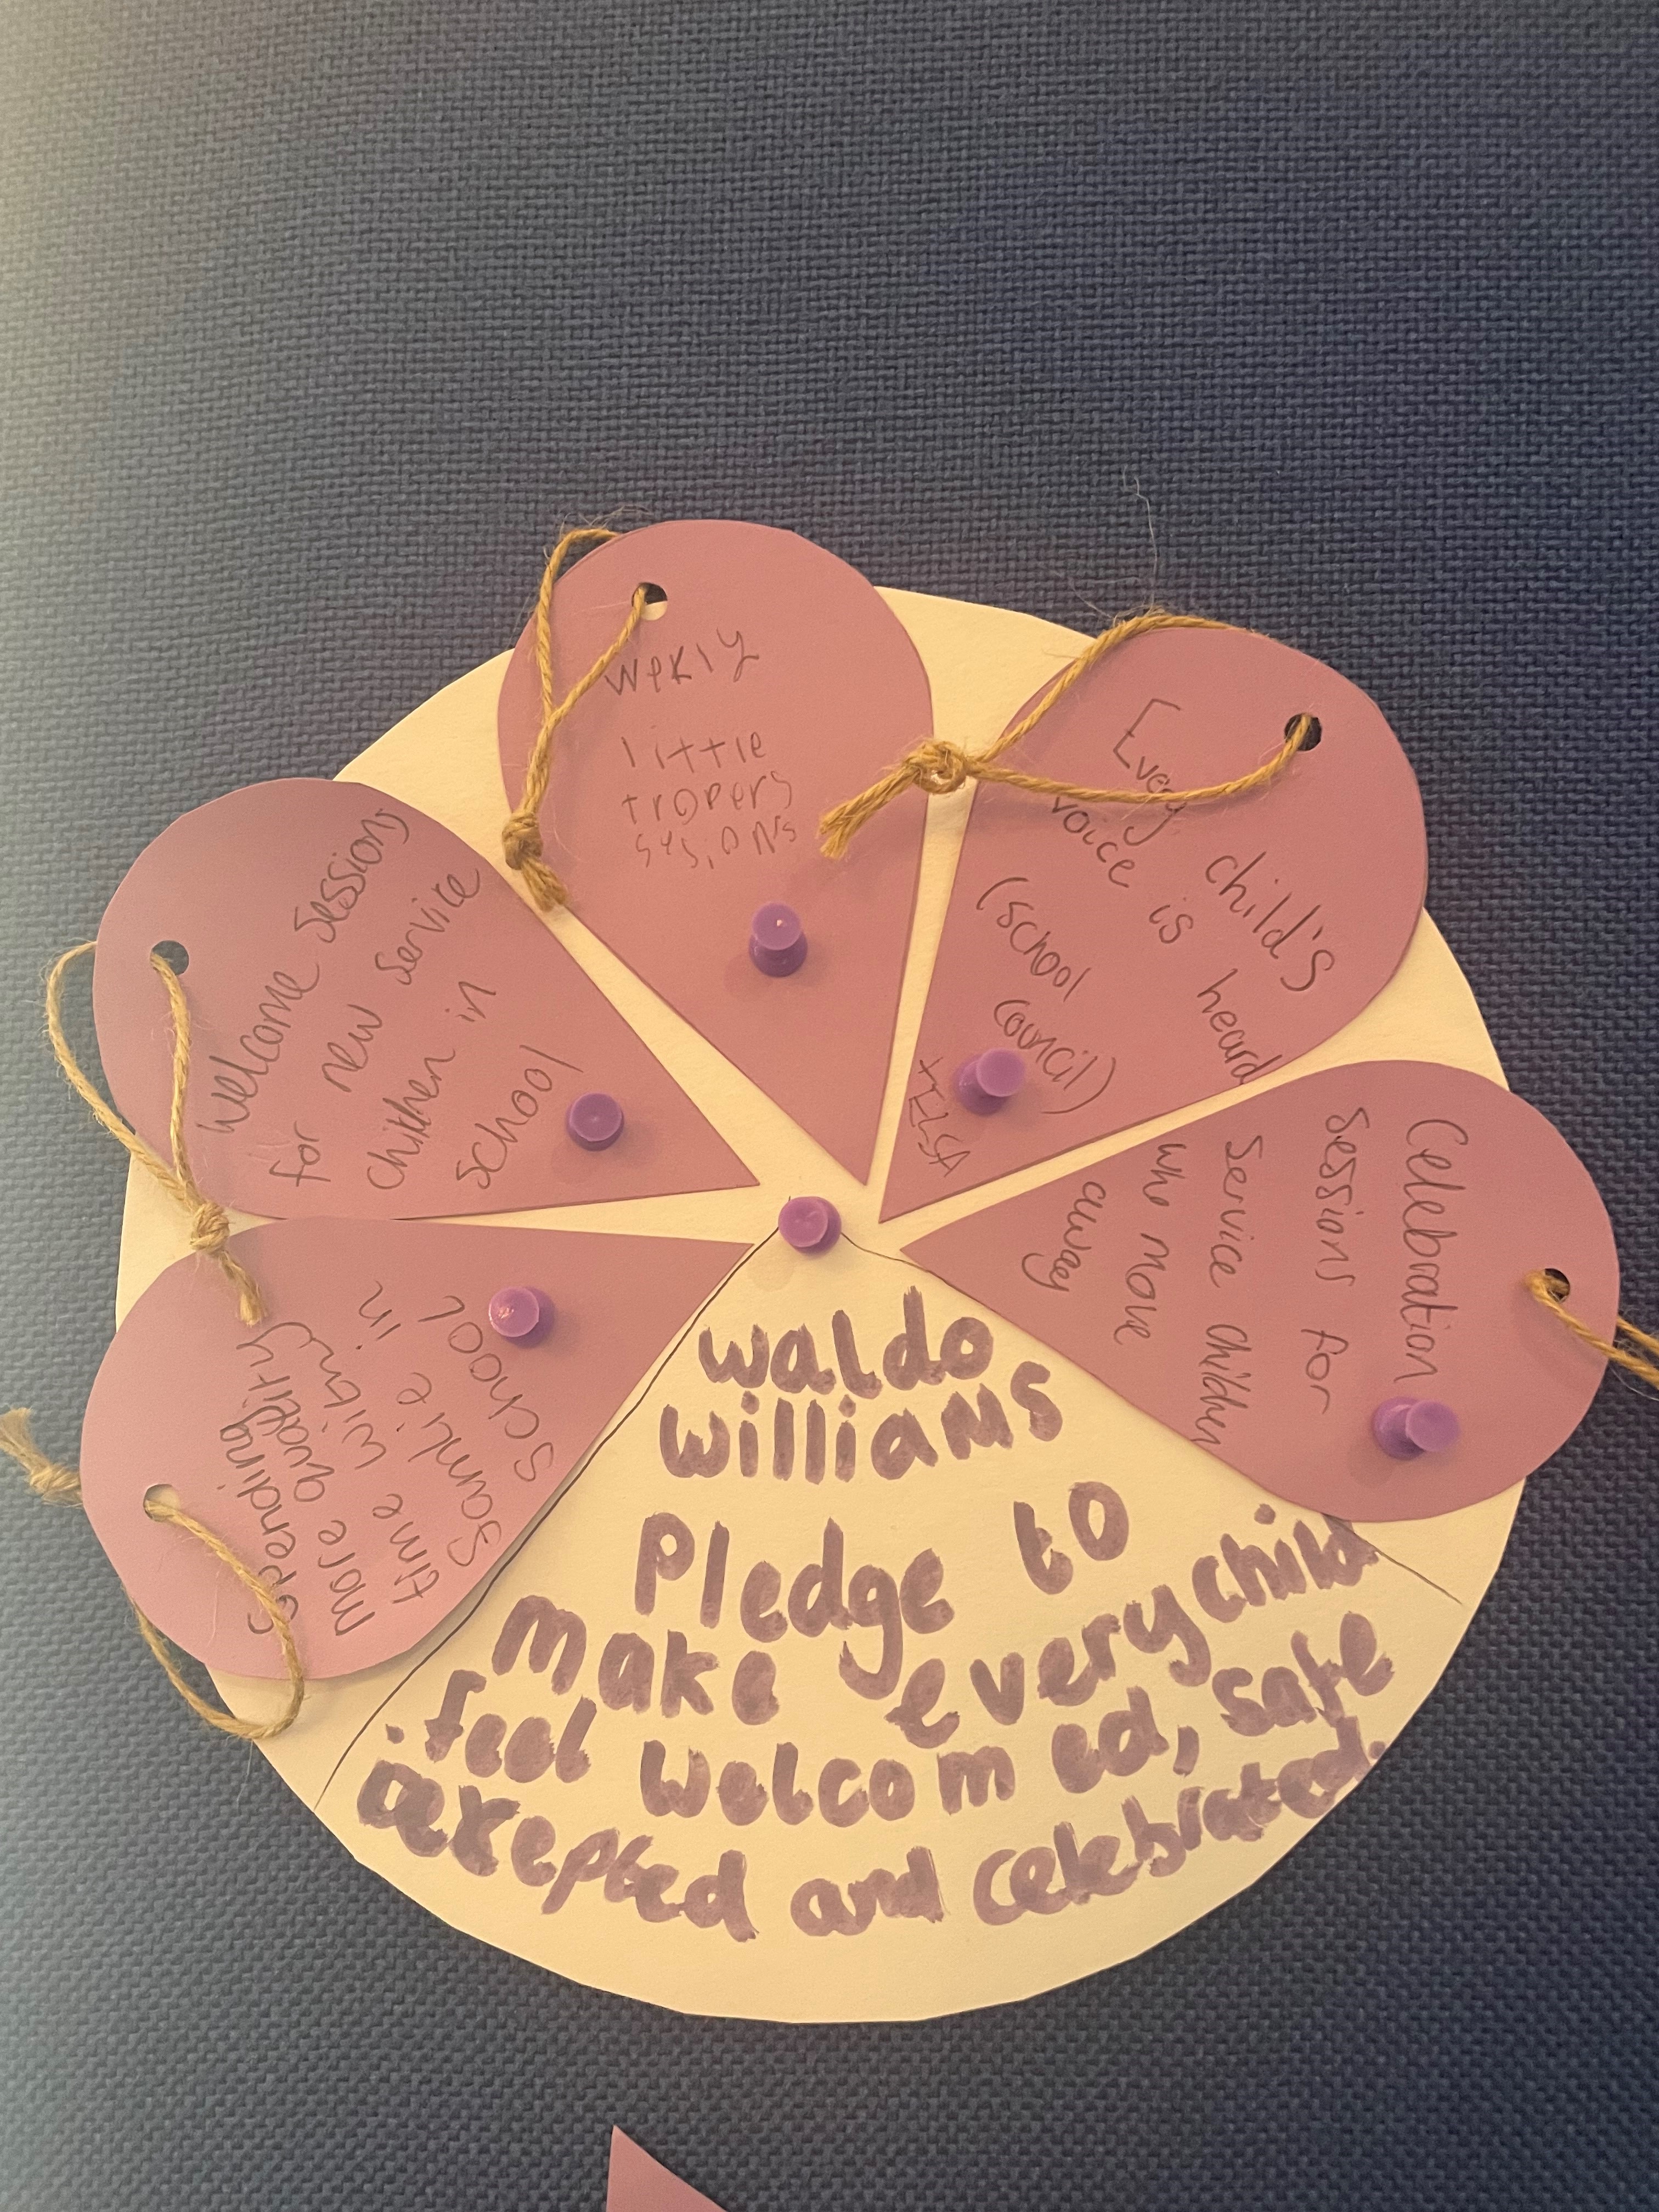 wekly
little
tropers
sysions
Every child's
voice is heard
(school
council)
+ELSA
Celebration
sessions for
service children
who move
away
Welcome sessions
for new service
children in
school
Spending
more quality
time with
Samlie in
school
waldo
williams
Pledge to
make every child
feel welcomed, safe
acxepted and celebrated.